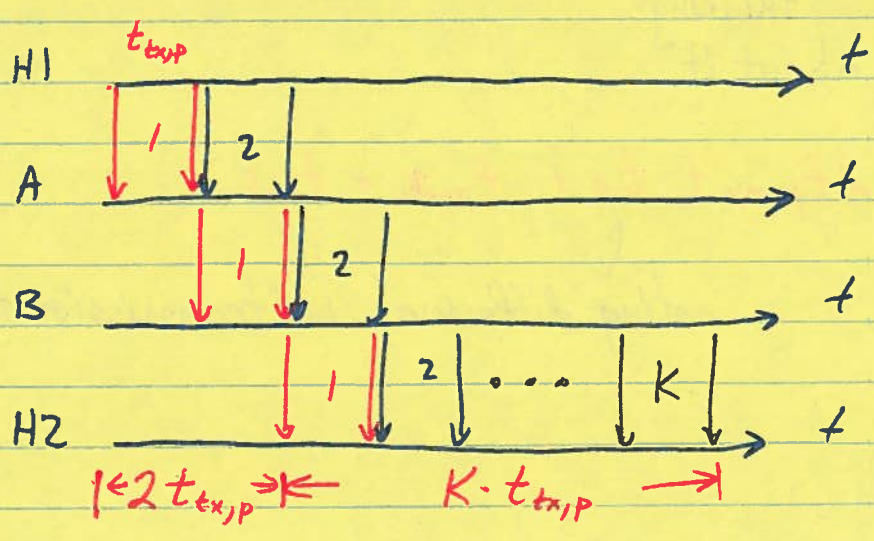 t_tx,p
H1 t
1 2
A t
1 2
B t
1 2 ... K
H2 t
|←2 t_tx,p→|← K · t_tx,p →|